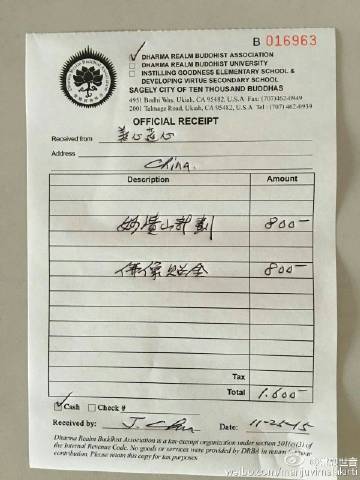 B 016963
DHARMA REALM BUDDHIST ASSOCIATION
DHARMA REALM BUDDHIST UNIVERSITY
INSTILLING GOODNESS ELEMENTARY SCHOOL &
DEVELOPING VIRTUE SECONDARY SCHOOL
SAGELY CITY OF TEN THOUSAND BUDDHAS
4951 Bodhi Way, Ukiah, CA 95482, U.S.A Fax: (707)462-0949
2001 Talmage Road, Ukiah, CA 95482, U.S.A Tel: (707) 462-0939
OFFICIAL RECEIPT
Received from
Address China
Description Amount
妙 山計劃 800—
佛像貼金 800—
Tax
Total 1,600—
Cash Check #
Received by: Date: 11-25-15
Dharma Realm Buddhist Association is a tax-exempt organization under section 501(c)(3) of
the Internal Revenue Code. No goods or services were provided by DRBA in return for
contribution. Please retain this copy for tax purposes.
weibo.com/manjuvimalakirti